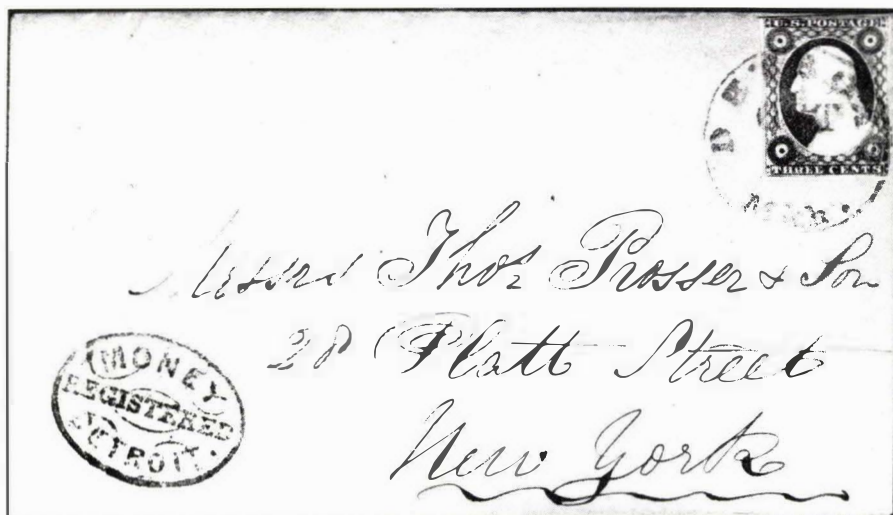 U.S. POSTAGE
THREE CENTS
Messrs Thos Prosser & Son
28 Platt Street
New York
MONEY
REGISTERED
DETROIT.